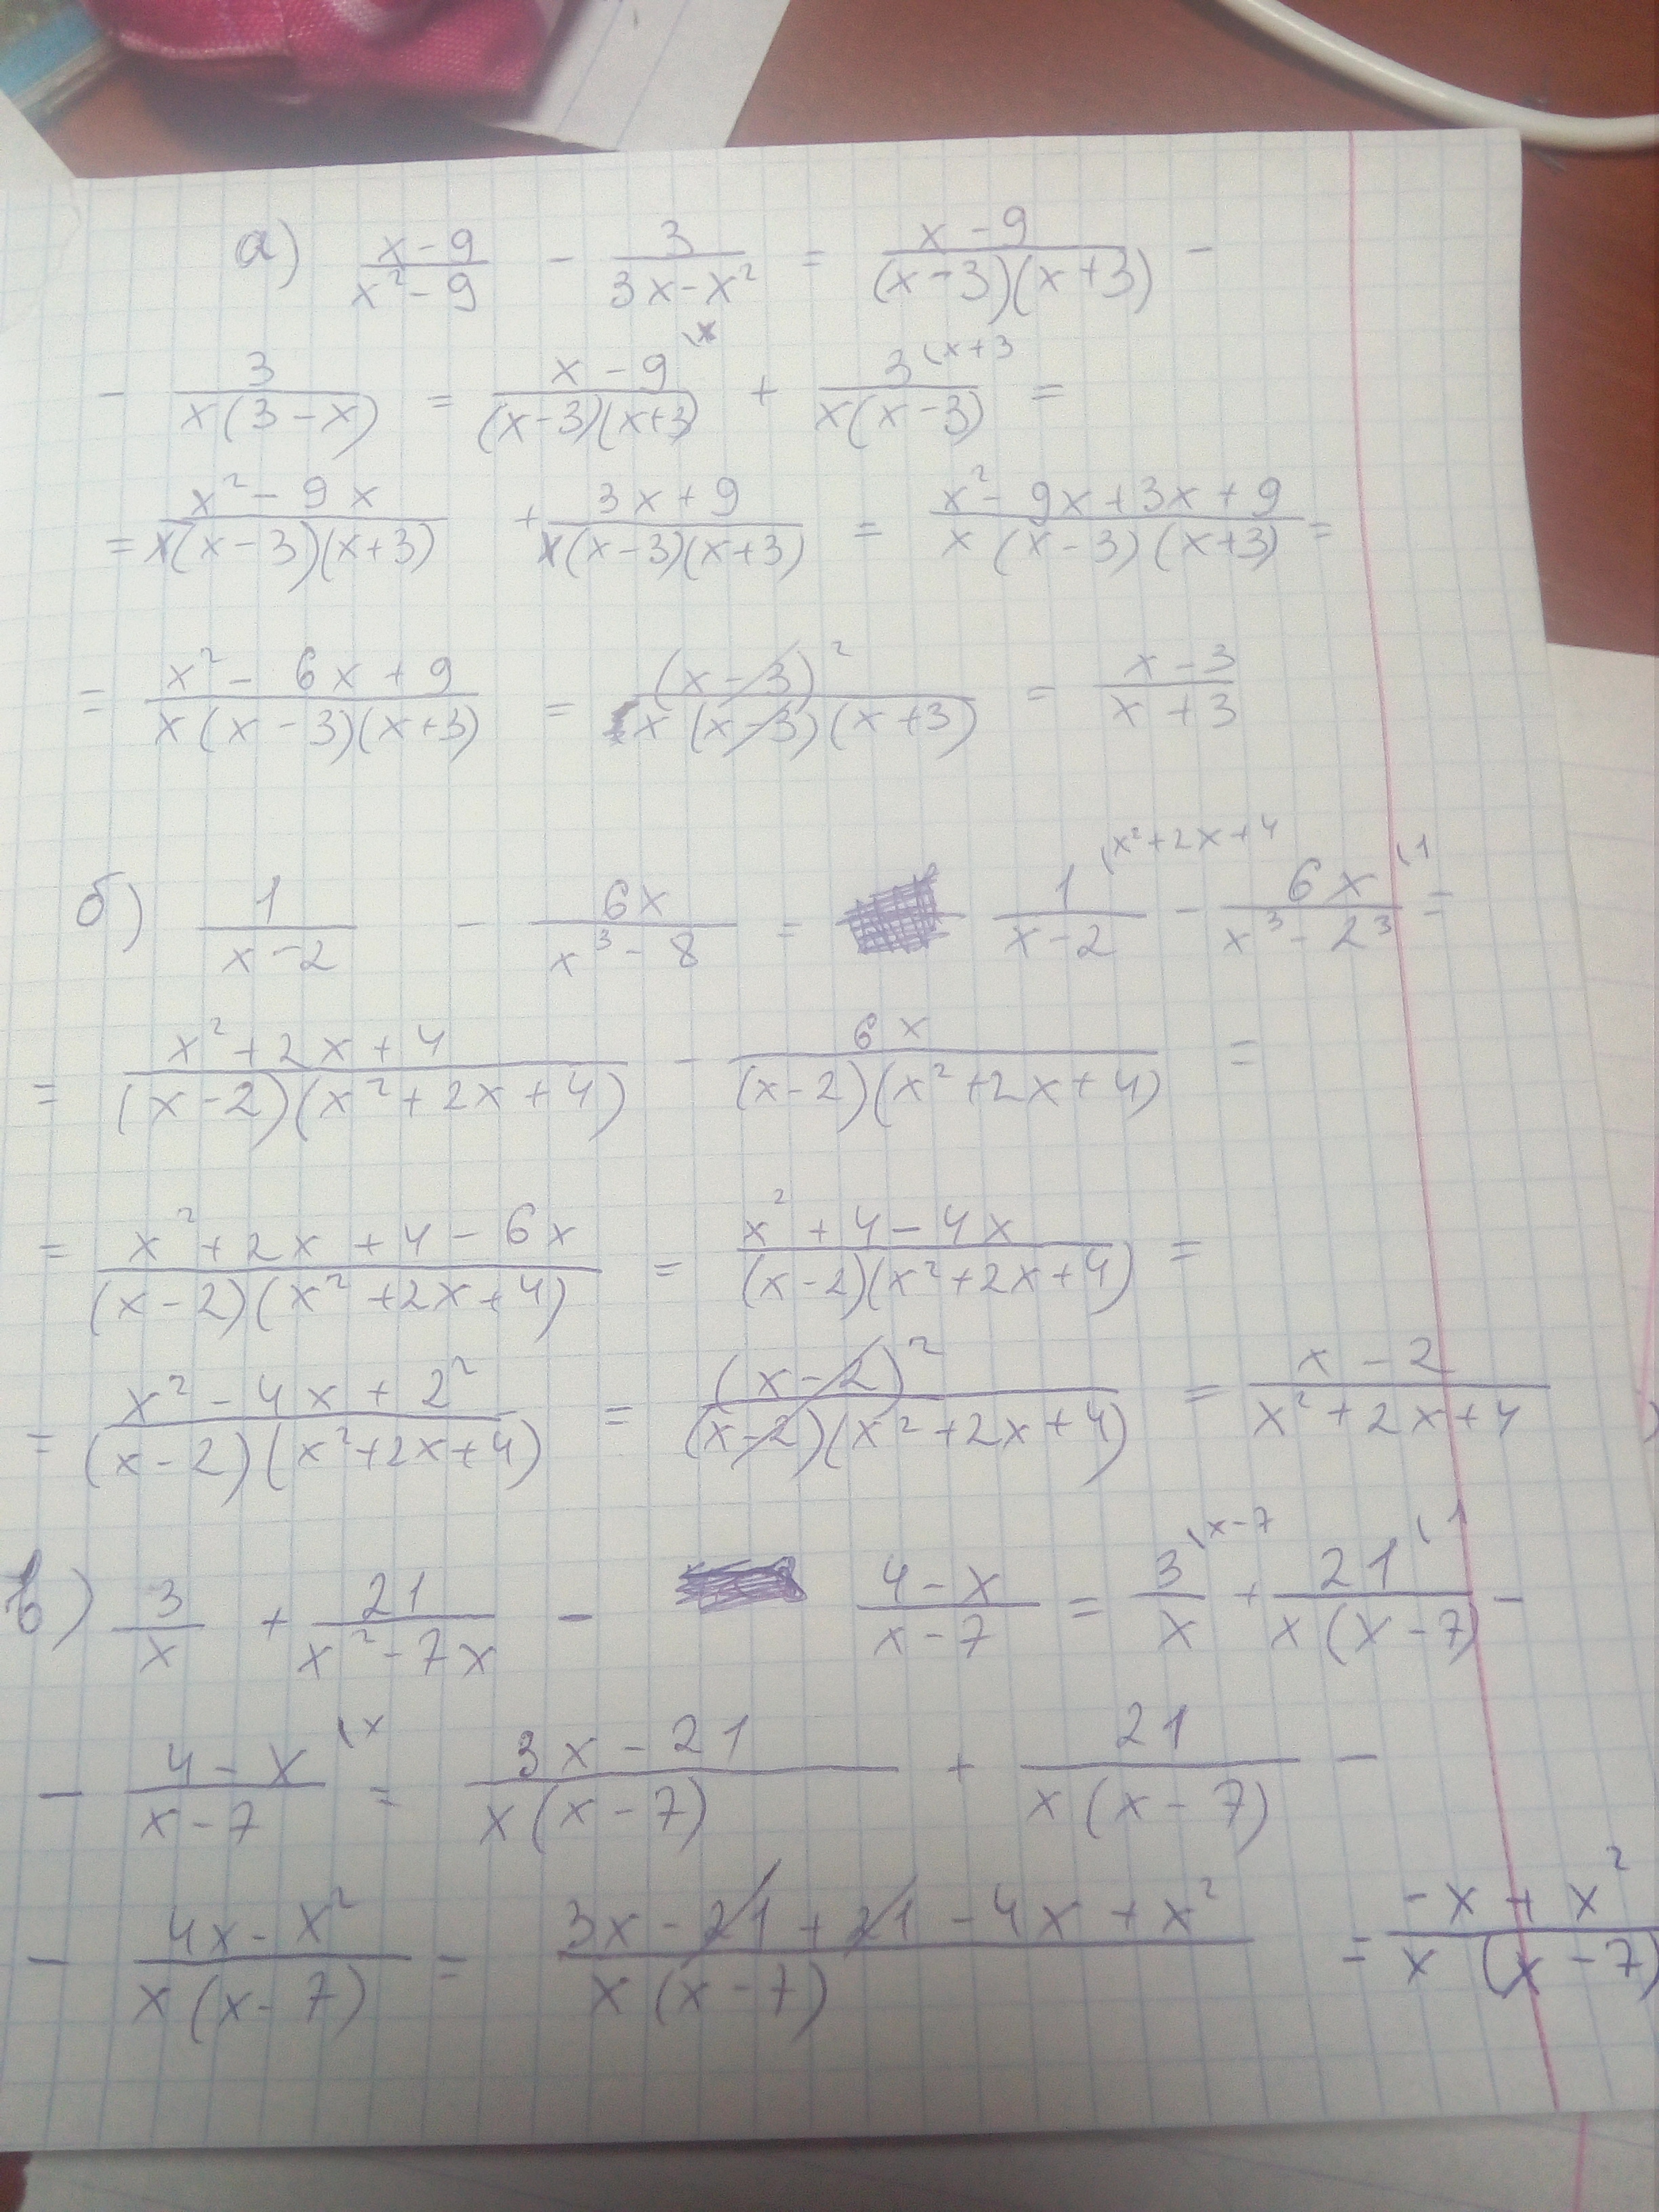 а) (x-9)/(x²-9) - 3/(3x-x²) = (x-9)/((x-3)(x+3)) -
- 3/(x(3-x)) = (x-9)/((x-3)(x+3)) (x + 3/(x(x-3)) (x+3 =
= (x²-9x)/(x(x-3)(x+3)) + (3x+9)/(x(x-3)(x+3)) = (x²-9x+3x+9)/(x(x-3)(x+3)) =
= (x²-6x+9)/(x(x-3)(x+3)) = (x-3)²/(x(x-3)(x+3)) = (x-3)/(x+3)
б) 1/(x-2) - 6x/(x³-8) = 1/(x-2) (x²+2x+4 - 6x/(x³-2³) (1 =
= (x²+2x+4)/((x-2)(x²+2x+4)) - 6x/((x-2)(x²+2x+4)) =
= (x²+2x+4-6x)/((x-2)(x²+2x+4)) = (x²+4-4x)/((x-2)(x²+2x+4)) =
= (x²-4x+2²)/((x-2)(x²+2x+4)) = (x-2)²/((x-2)(x²+2x+4)) = (x-2)/(x²+2x+4)
в) 3/x + 21/(x²-7x) - (4-x)/(x-7) = 3/x (x-7 + 21/(x(x-7)) (1 -
- (4-x)/(x-7) (x = (3x-21)/(x(x-7)) + 21/(x(x-7)) -
- (4x-x²)/(x(x-7)) = (3x-21+21-4x+x²)/(x(x-7)) = (-x+x²)/(x(x-7))